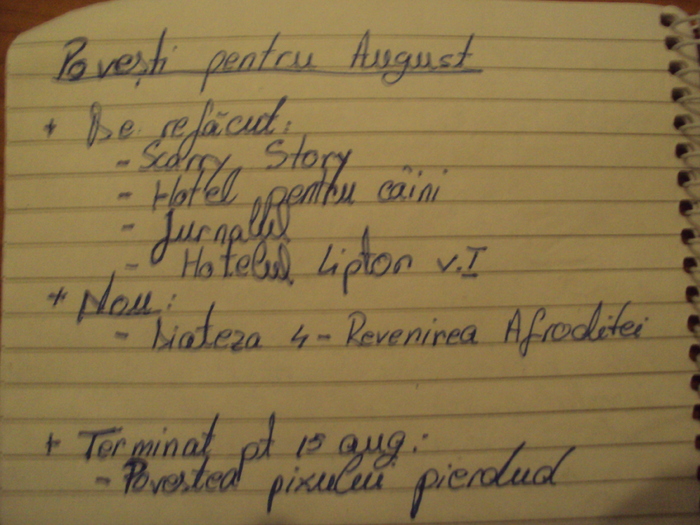 Povești pentru August
+ De refăcut:
- Scarry Story
- Hotel pentru câini
- Jurnalul
- Hotelul Lipton v.I
+ Nou:
- Diateza 4 - Revenirea Afroditei
+ Terminat pt 15 aug.:
- Povestea pixului pierdud